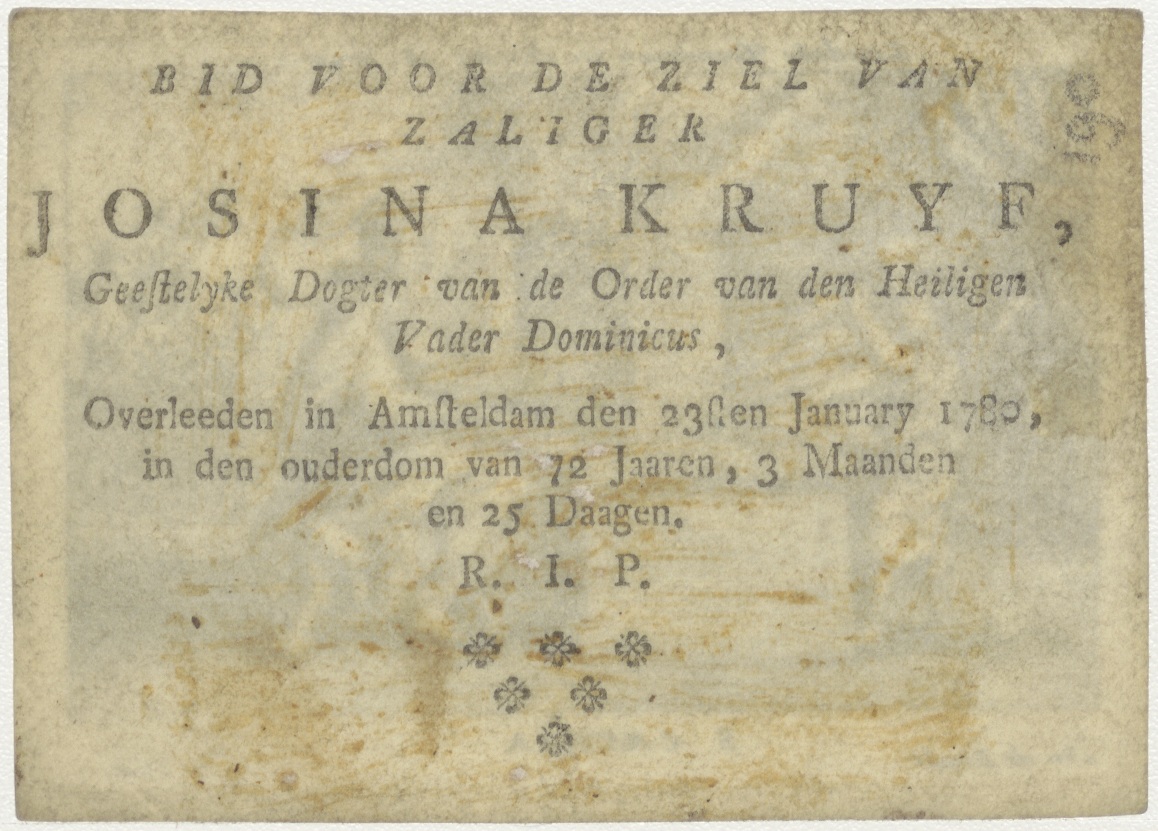 BID VOOR DE ZIEL VAN
ZALIGER
JOSINA KRUYF,
Geeſtelyke Dogter van de Order van den Heiligen
Vader Dominicus,
Overleeden in Amſteldam den 23ſten January 1780,
in den ouderdom van 72 Jaaren, 3 Maanden
en 25 Daagen.
R. I. P.